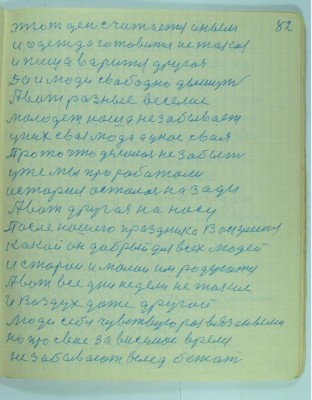 82
этот ден считается иным
и одежда готовится не такая
и пища варится другая
Да и люди свободно дышут
А вот разные веселие
молодеж наша не забывает
у них своя мода а у нас своя
Про то что делалоя не забыт
уже мы про работали
история осталоя на зади
А вот другая на носу
После нашего праздника
Какой он добрый для всех людей
и старой и малой им
А вот все дни недели не такие
и воздух даже другой
Люди себя чувствуют развязаными
но про свое зависемое время
не забывают вслед бежат